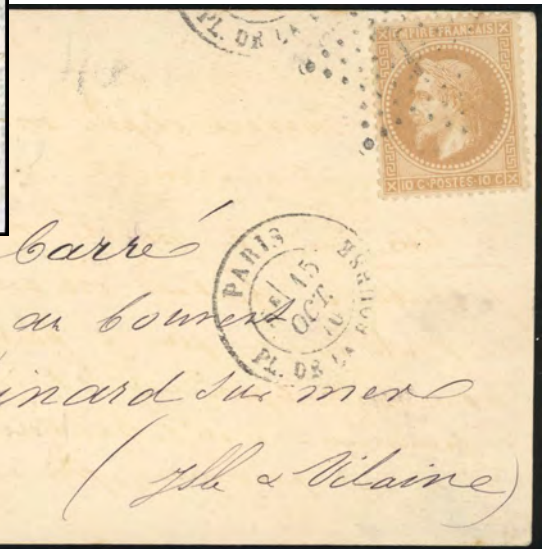 PL. DE LA
EMPIRE FRANÇAIS
10 C·POSTES·10 C
Carré
PARIS
15
OCT.
70
PL. DE LA BOURSE
du couvent
inard sur mer
(Ille & Vilaine)